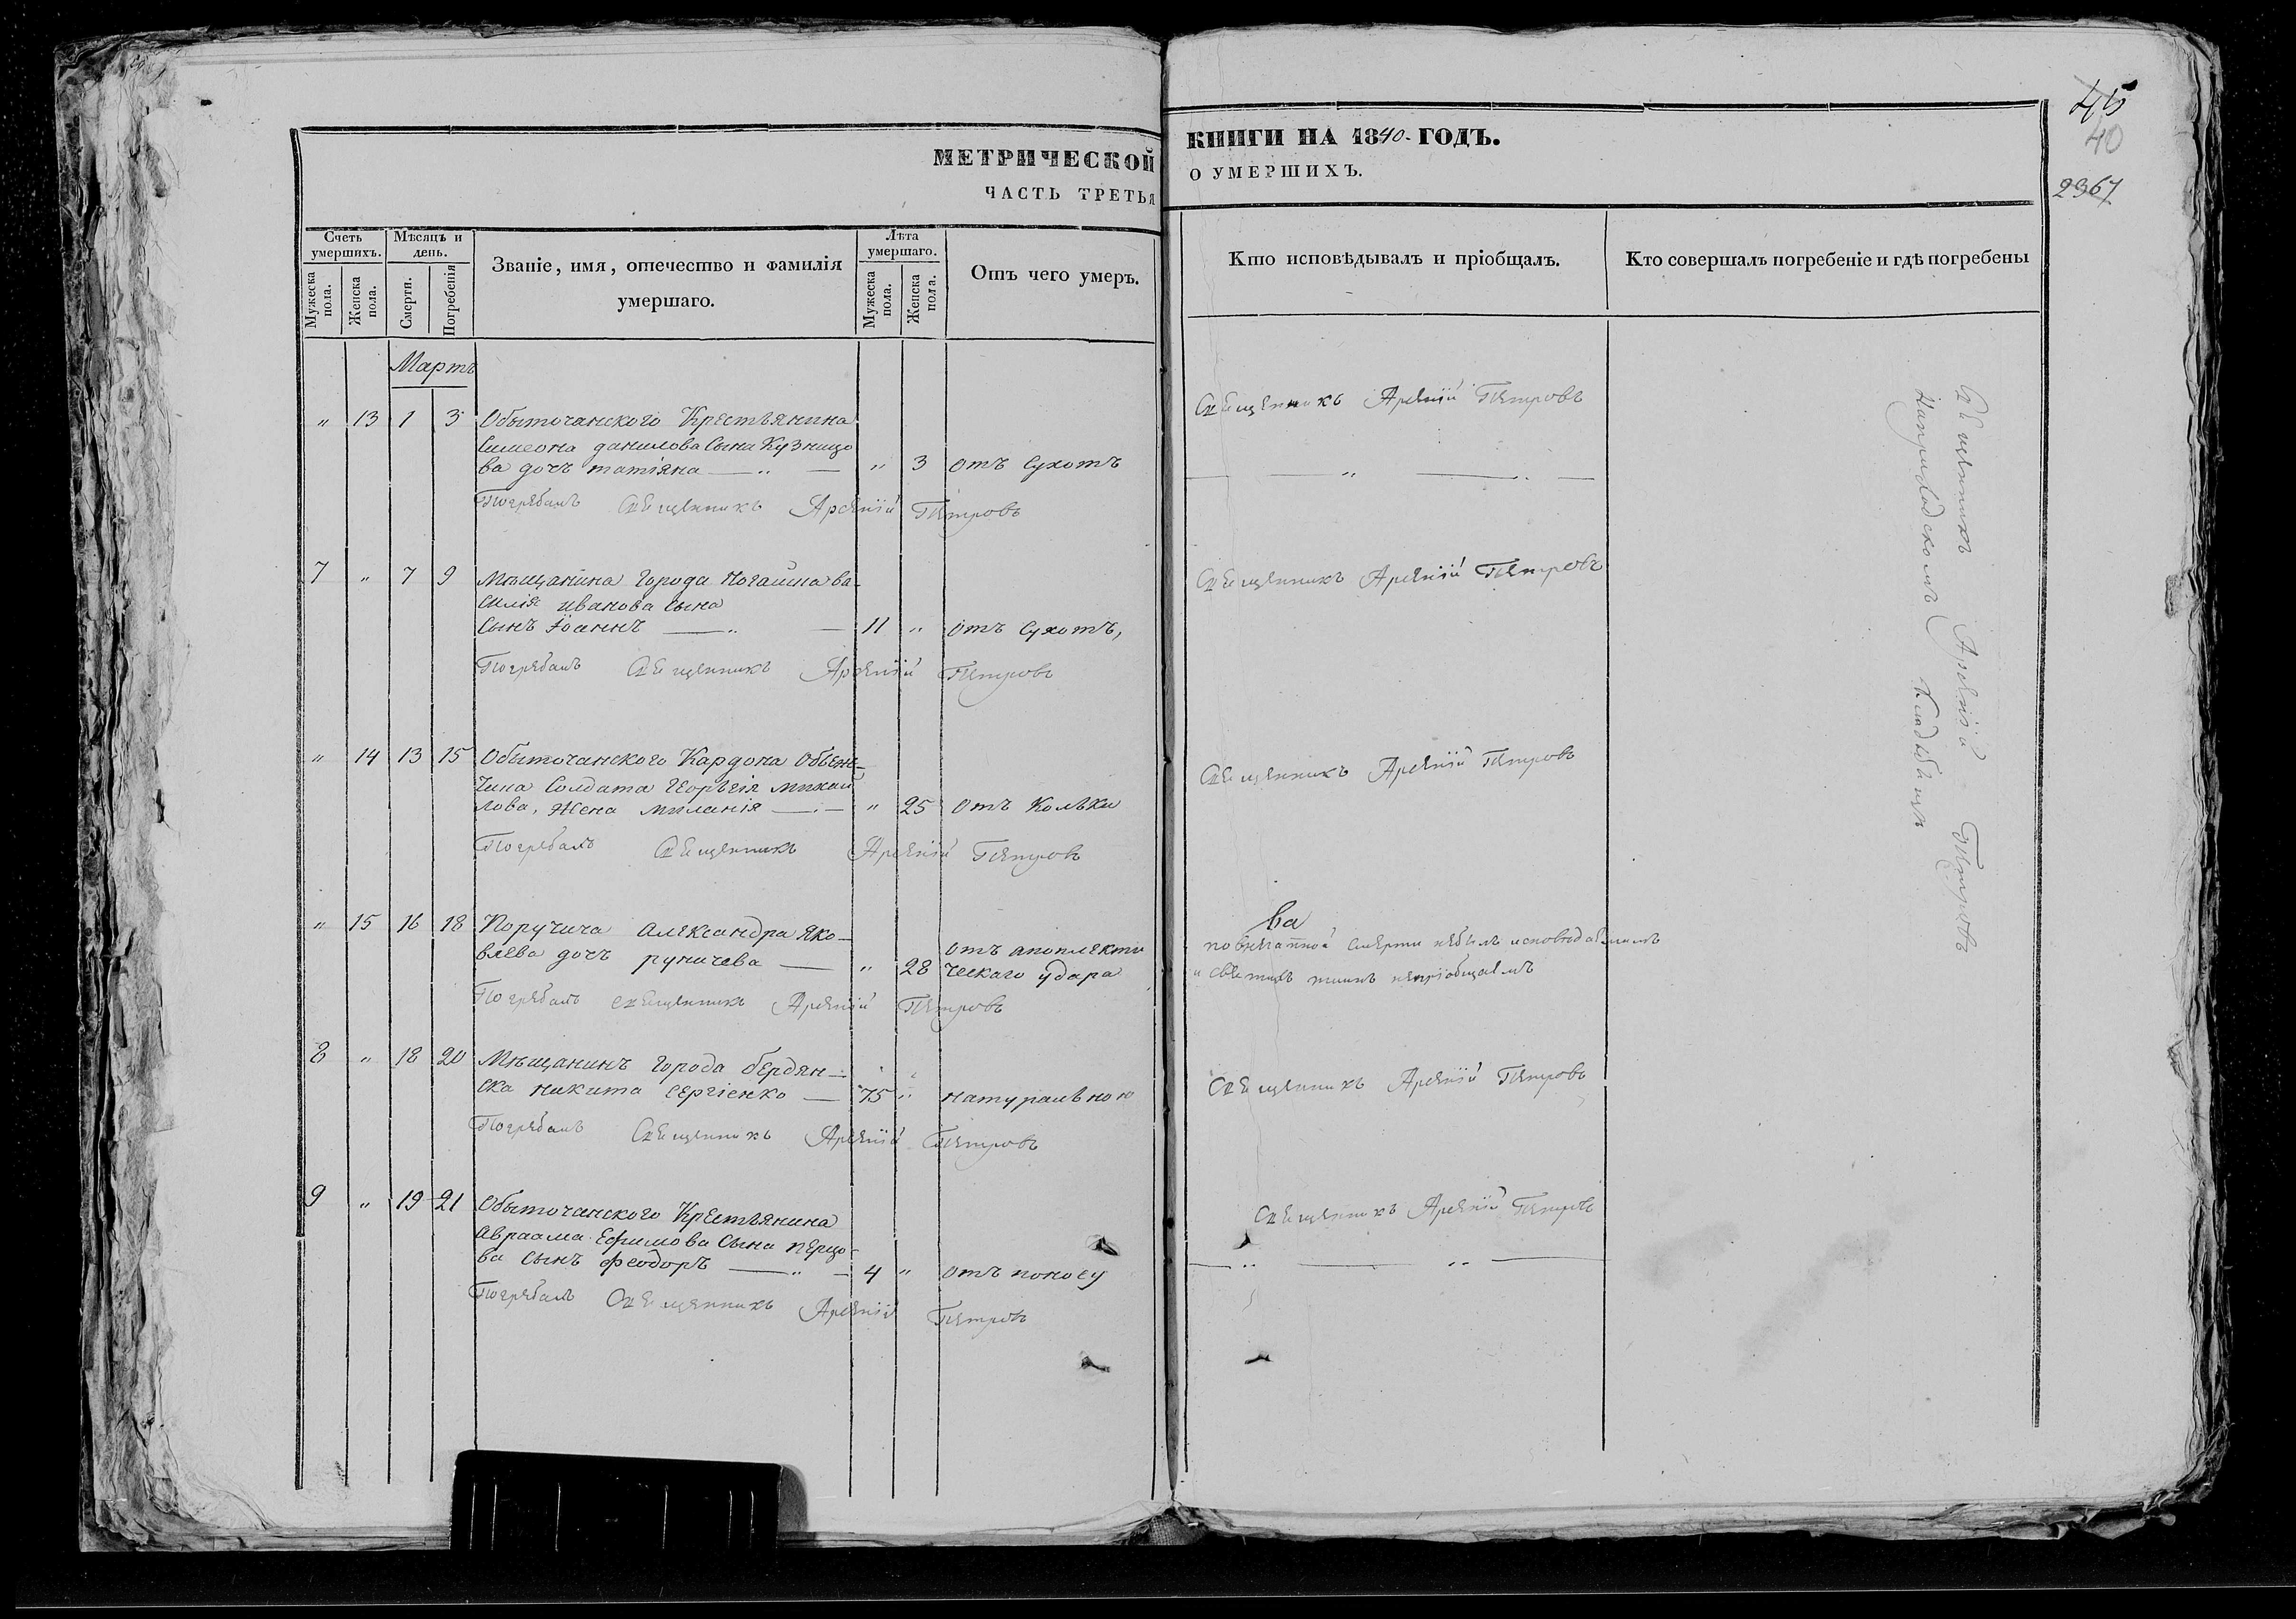 МЕТРИЧЕСКОЙ КНИГИ НА 1840. ГОДЪ.
ЧАСТЬ ТРЕТЬЯ О УМЕРШИХЪ.
45
40
2367
Счетъ умершихъ.
Мужеска пола.
Женска пола.
Мѣсяцъ и день.
Смерти.
Погребенія
Званіе, имя, отечество и фамилія умершаго.
Лѣта умершаго.
Мужеска пола.
Женска пола.
Отъ чего умеръ.
Кто исповѣдывалъ и пріобщалъ.
Кто совершалъ погребеніе и гдѣ погребены
Мартъ
" 13 1 3 Обыточанского Крестьянина
Симеона данилова Сына Кузницо
ва дочь татіяна — " — " 3 отъ Сухотъ
Священникъ Арсеній Петровъ
Погребалъ Священникъ Арсеній Петровъ
7 " 7 9 Мѣщанина города Ногайска ва-
силія иванова сына
Сынъ Іоаннъ — " — 11 " отъ Сухотъ,
Священникъ Арсеній Петровъ
Погребалъ Священникъ Арсеній Петровъ
" 14 13 15 Обыточанского Кардона Объежд-
чика Солдата Георьгія михаи
лова, Жена миланія — " 25 отъ Кольки
Священникъ Арсеній Петровъ
Погребалъ Священникъ Арсеній Петровъ
" 15 16 18 Поручика александра яко-
влева дочь руничева — " 28 отъ апоплекти
ческаго удара
ва
по внезапной смерти небылъ исповѣдаемъ
и святыхъ таинъ непріобщаемъ
Погребалъ священникъ Арсеній Петровъ
8 " 18 20 Мѣщанинъ города бердян-
ска никита сергіенко — 75 " натуральною
Священникъ Арсеній Петровъ
Погребалъ Священникъ Арсеній Петровъ
9 " 19 21 Обыточанского Крестьянина
авраама Ефимова Сына перцо-
ва Сынъ феодоръ — " — 4 " отъ поносу
Священникъ Арсеній Петровъ
Погребалъ Священникъ Арсеній Петровъ
Священникъ Арсеній Петровъ
На приходскомъ Кладбищи